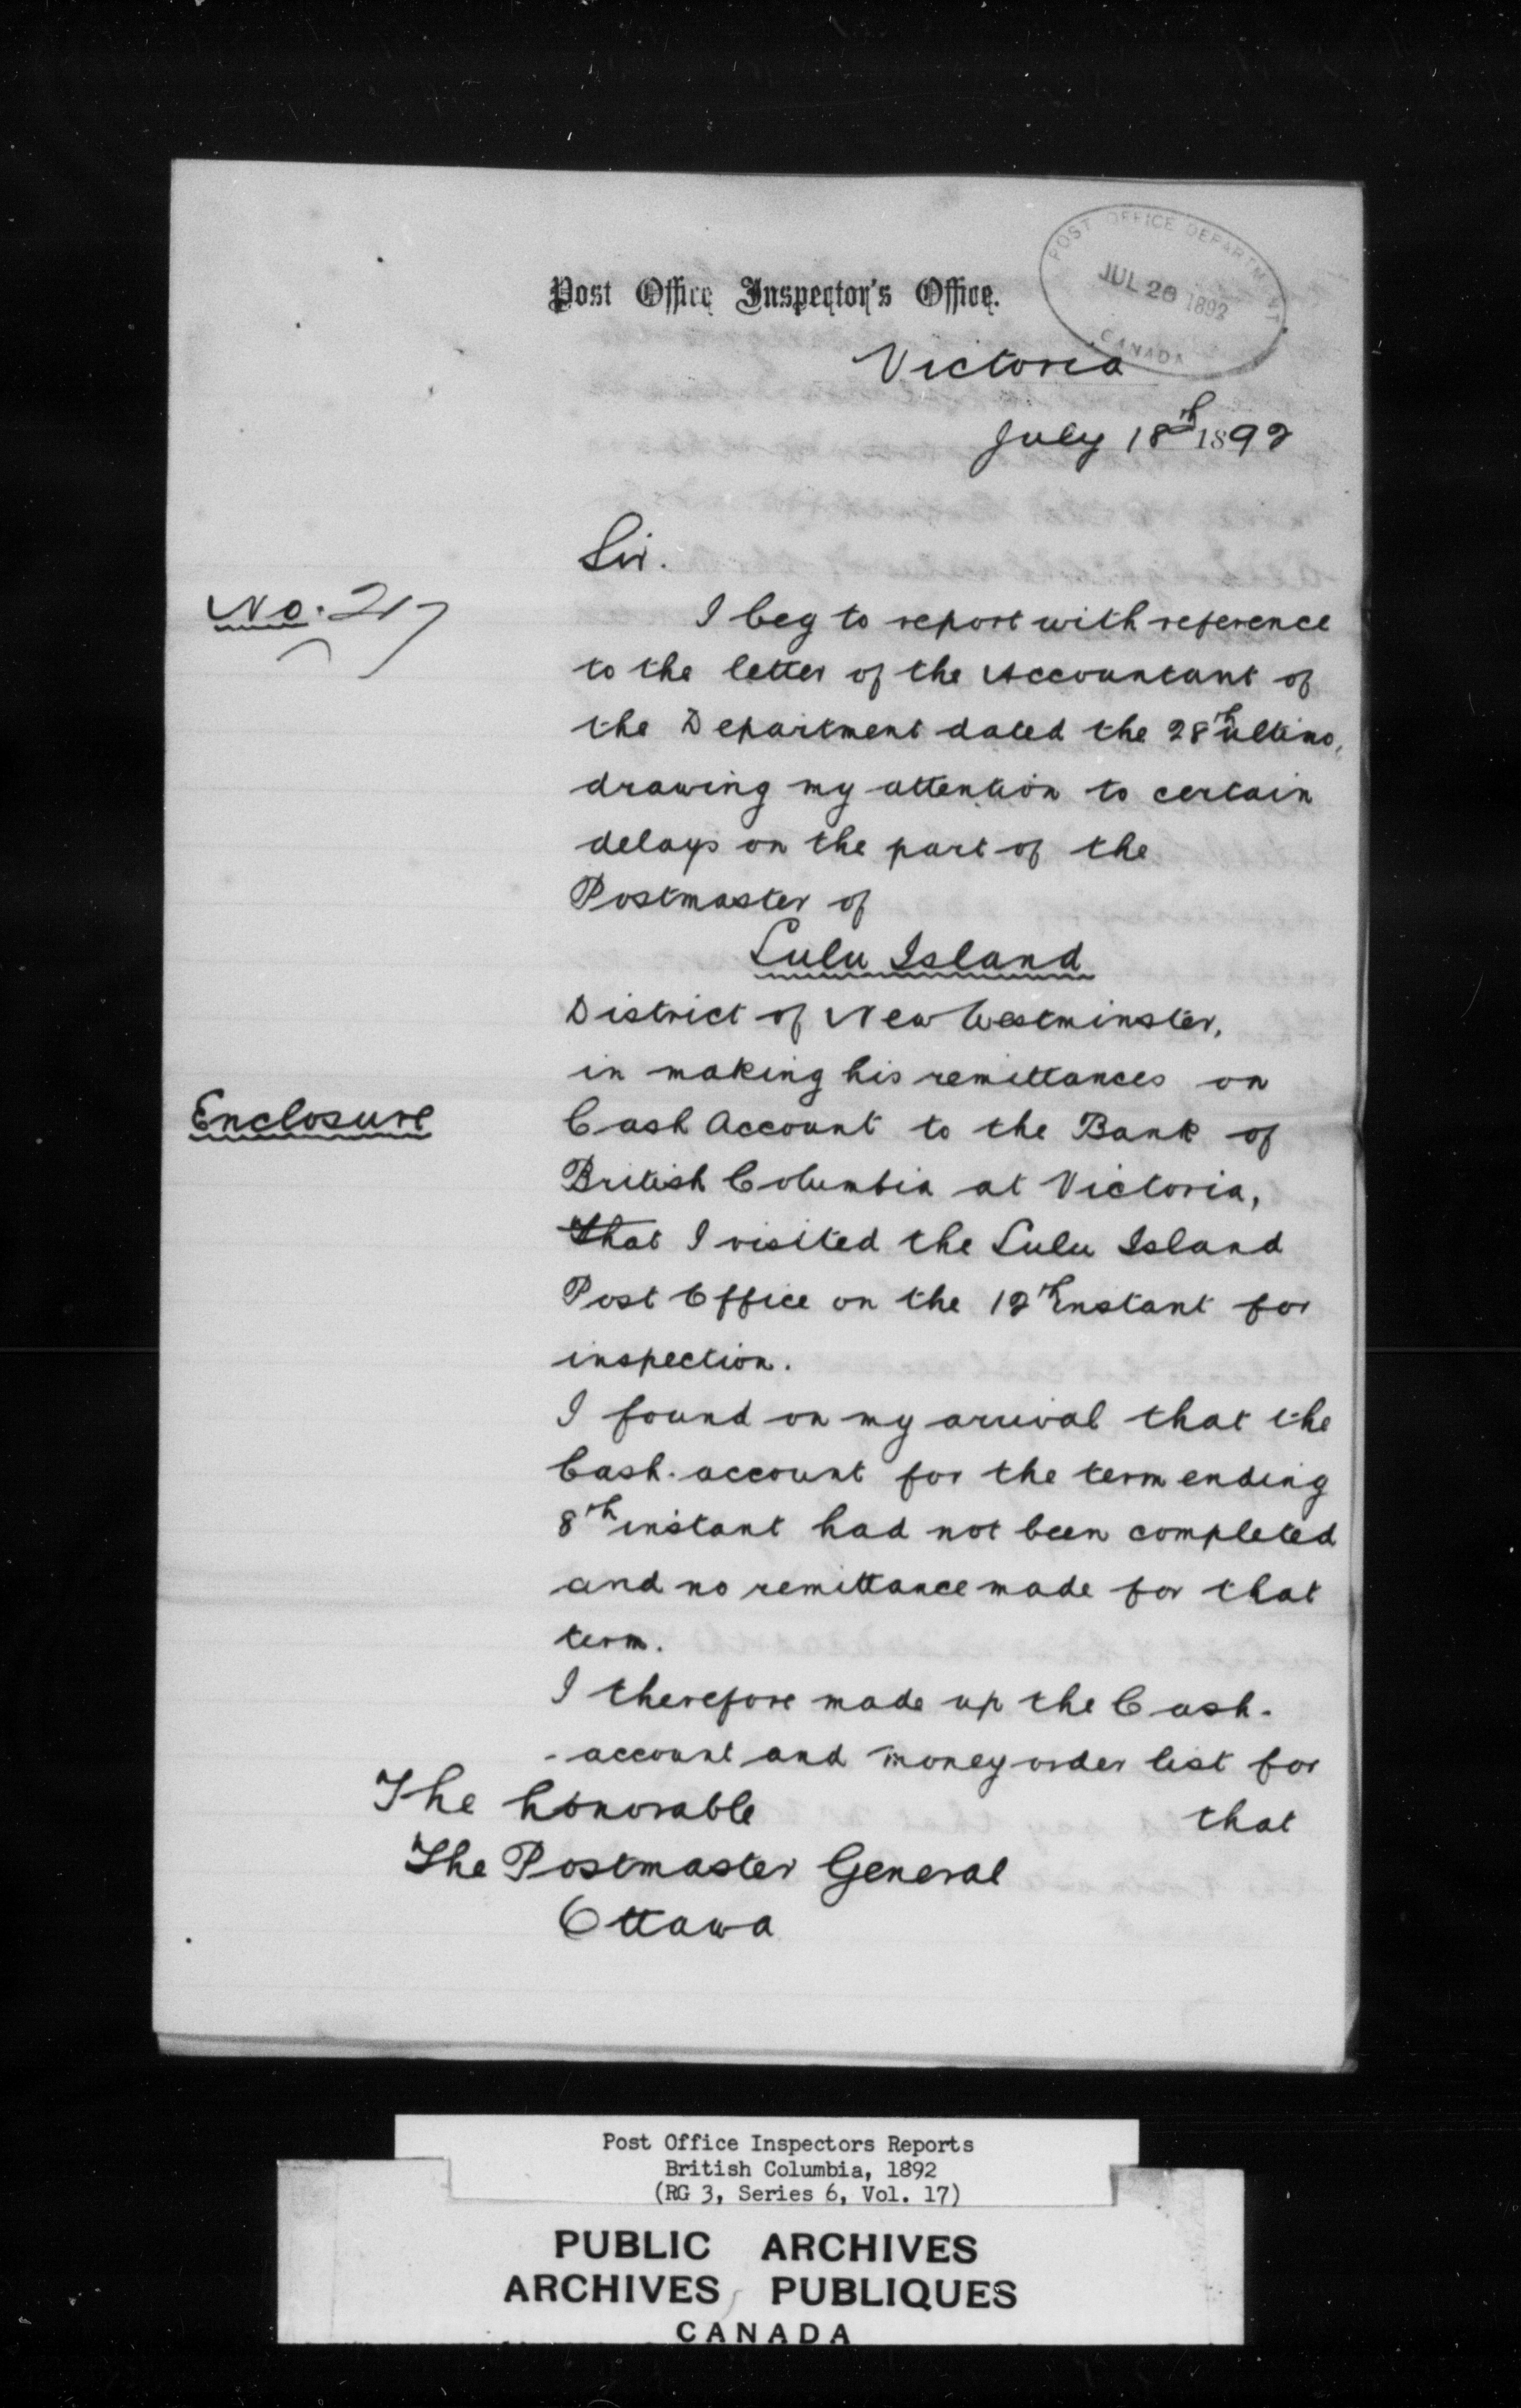 POST OFFICE DEPARTMENT
JUL 26 1892
CANADA
Post Office Inspector's Office.
Victoria
July 18th 1892
Sir.
No. 217
I beg to report with reference
to the letter of the Accountant of
the Department dated the 28th ultimo,
drawing my attention to certain
delays on the part of the
Postmaster of
Lulu Island
District of New Westminster,
in making his remittances on
Enclosure
Cash Account to the Bank of
British Columbia at Victoria,
that I visited the Lulu Island
Post Office on the 12th Instant for
inspection.
I found on my arrival that the
Cash-account for the term ending
8th instant had not been completed
and no remittance made for that
term.
I therefore made up the Cash-
-account and money order list for
that
The honorable
The Postmaster General
Ottawa
Post Office Inspectors Reports
British Columbia, 1892
(RG 3, Series 6, Vol. 17)
PUBLIC ARCHIVES
ARCHIVES PUBLIQUES
CANADA